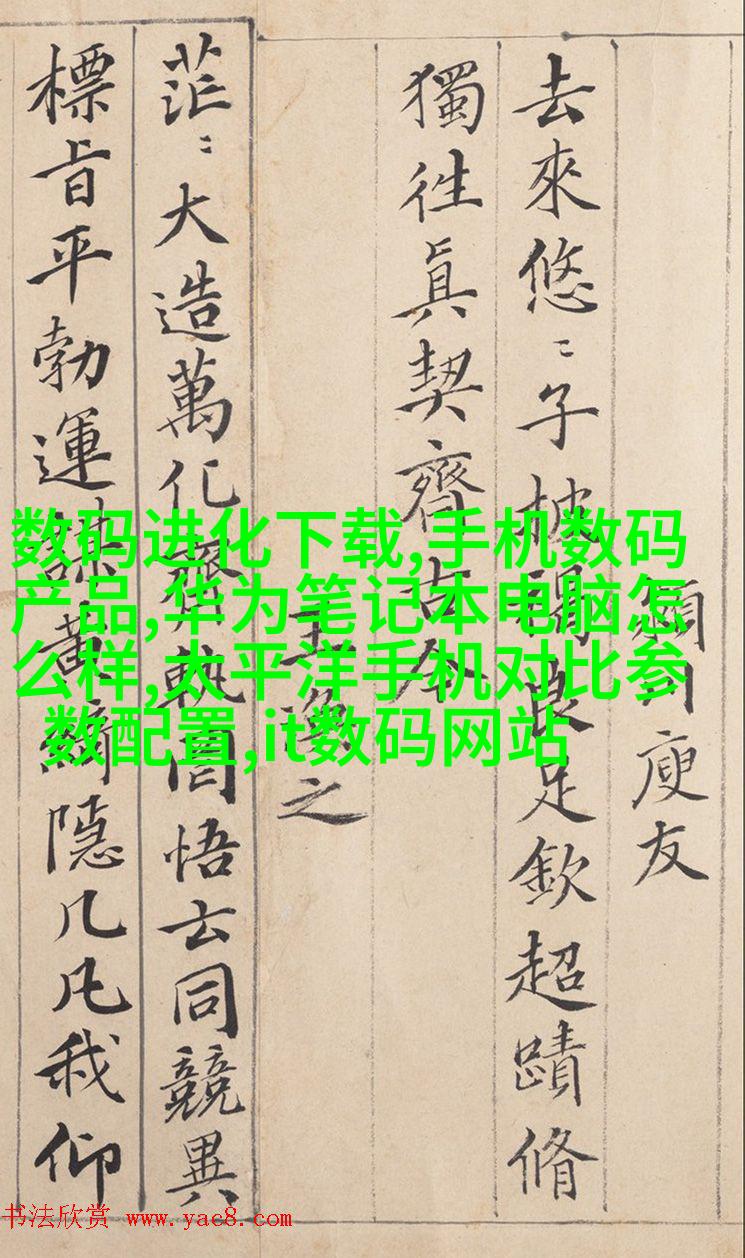 潁川庾友
去來悠〻子披褐良足欽超蹟脩
獨徃眞契齊古今
王渙之
茫〻大造萬化齊軌罔悟玄同競異
標旨平勃運謀黃綺隱几凡我仰
数码进化下载,手机数码
产品,华为笔记本电脑怎
么样,太平洋手机对比参
数配置,it数码网站
书法欣赏 www.yac8.com